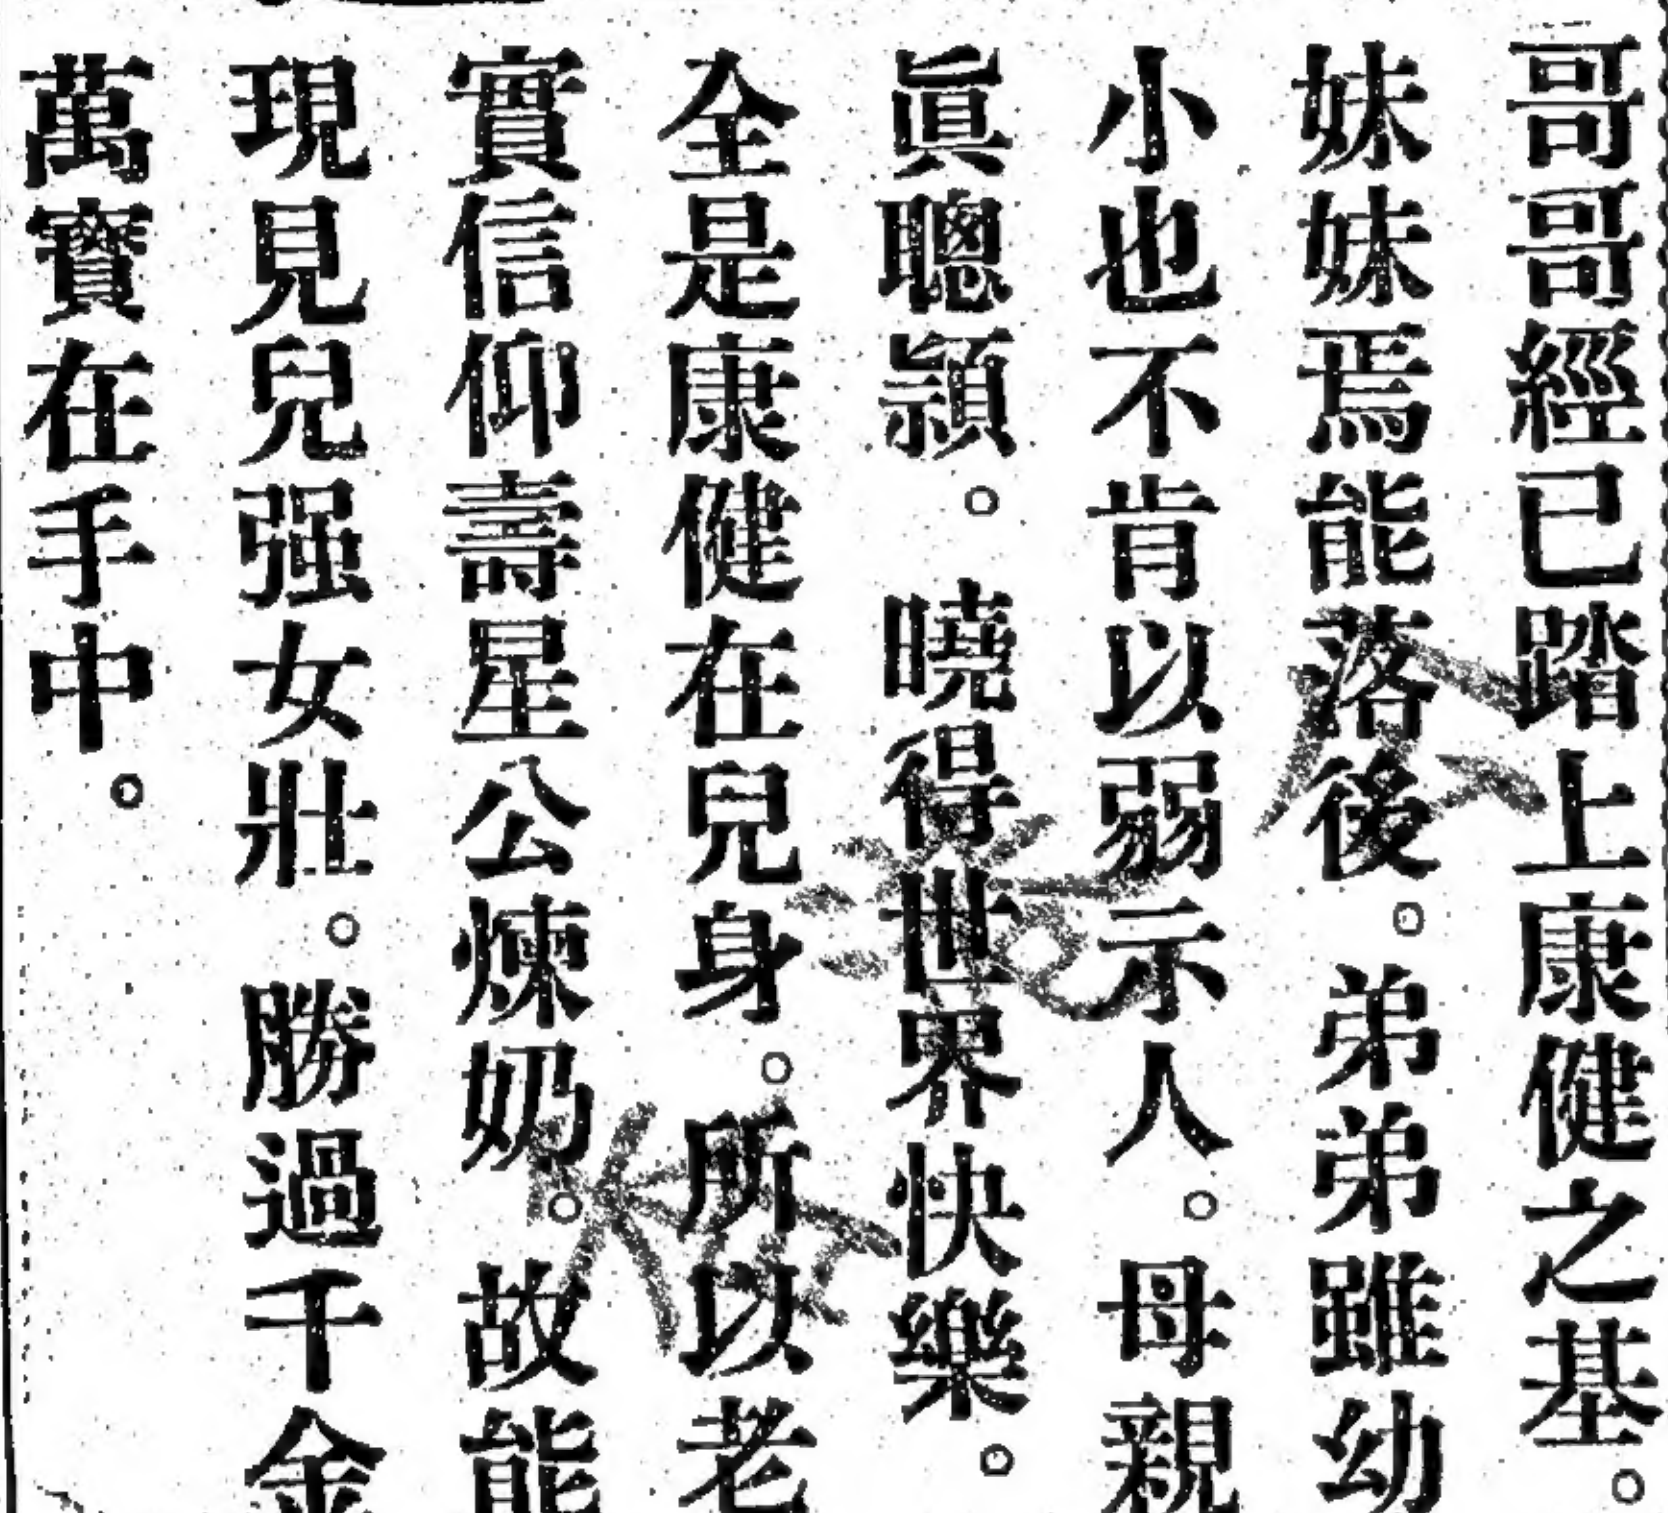 哥哥經已踏上康健之基。
妹妹焉能落後。弟弟雖幼
小也不肯以弱示人。母親
眞聰頴。曉得世界快樂。
全是康健在兒身。所以老
實信仰壽星公煉奶。故能
現見兒强女壯。勝過千金
萬寶在手中。